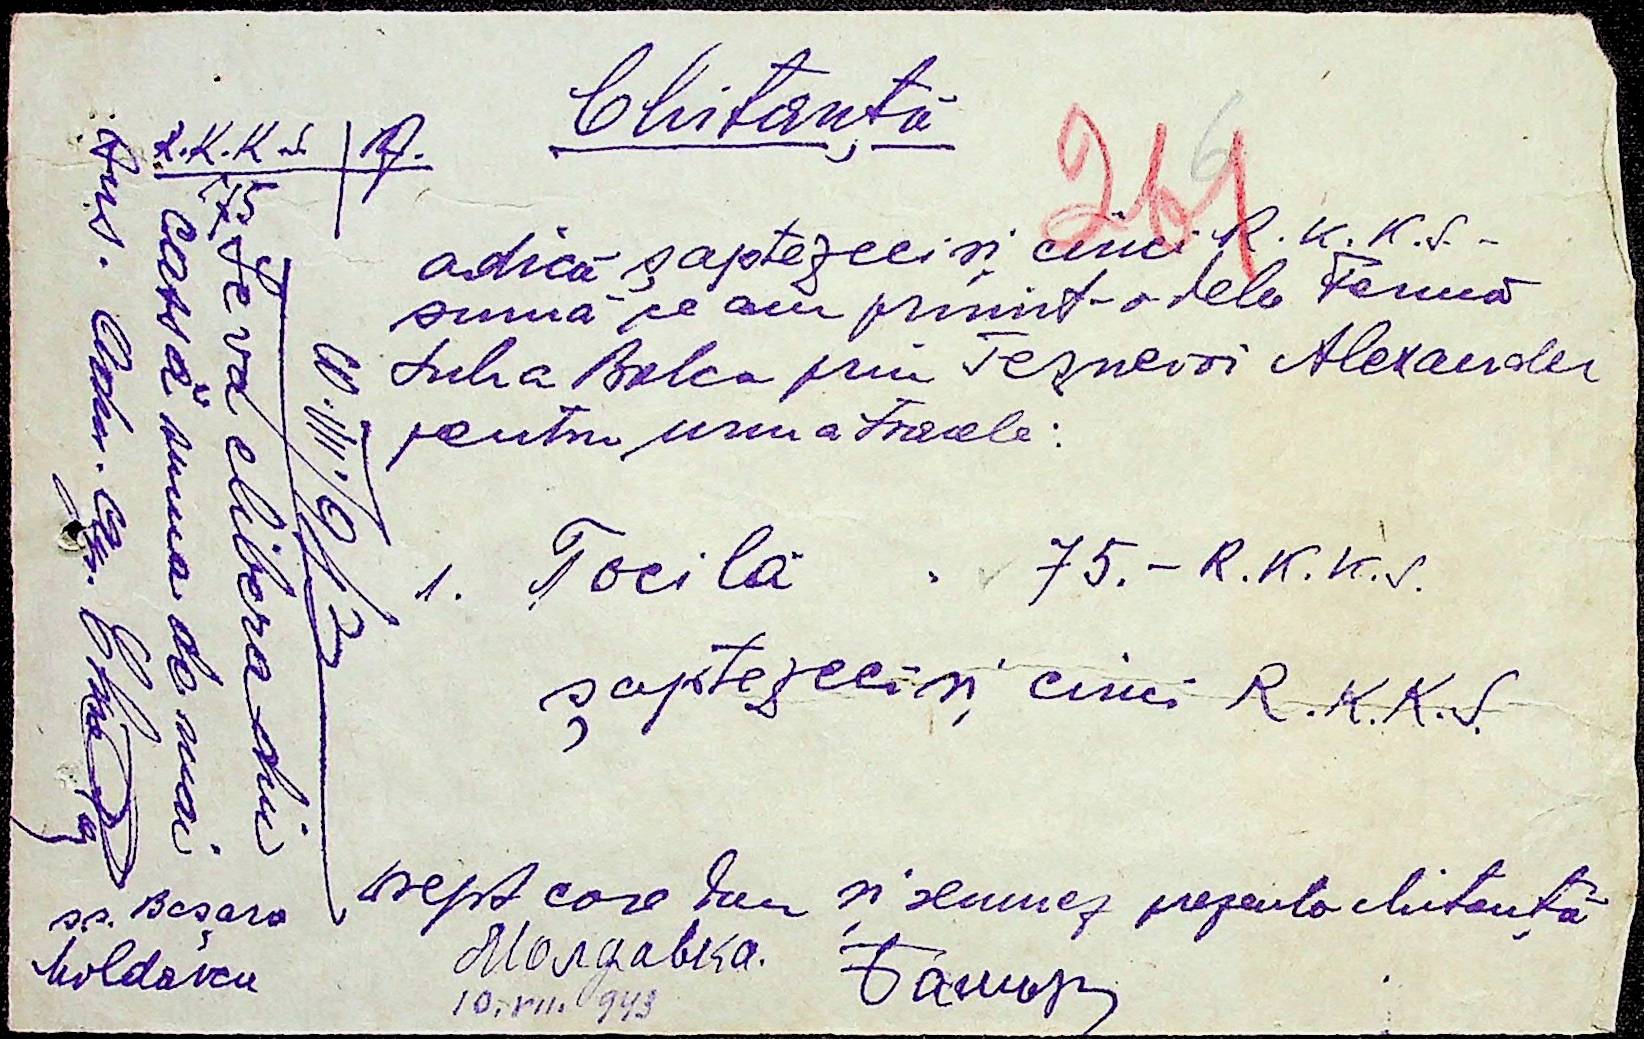 Chitanță
261
6
R.K.K.S. | Rf.
75
adică șaptezeci și cinci R.K.K.S.-
sumă ce am primit-o dela Ferma
Suha Balca prin Teznevoi Alexander
pentru urmatoarele:
1. Tocilă . 75.- R.K.K.S.
șaptezeci și cinci R.K.K.S.
drept care dau și semnez prezenta chitanță
Молдавка.
10.VIII.943
Se va elibera din
Casă suma de mai
sus. Adm.
10.VIII.943
ss. Bașara
Moldavca